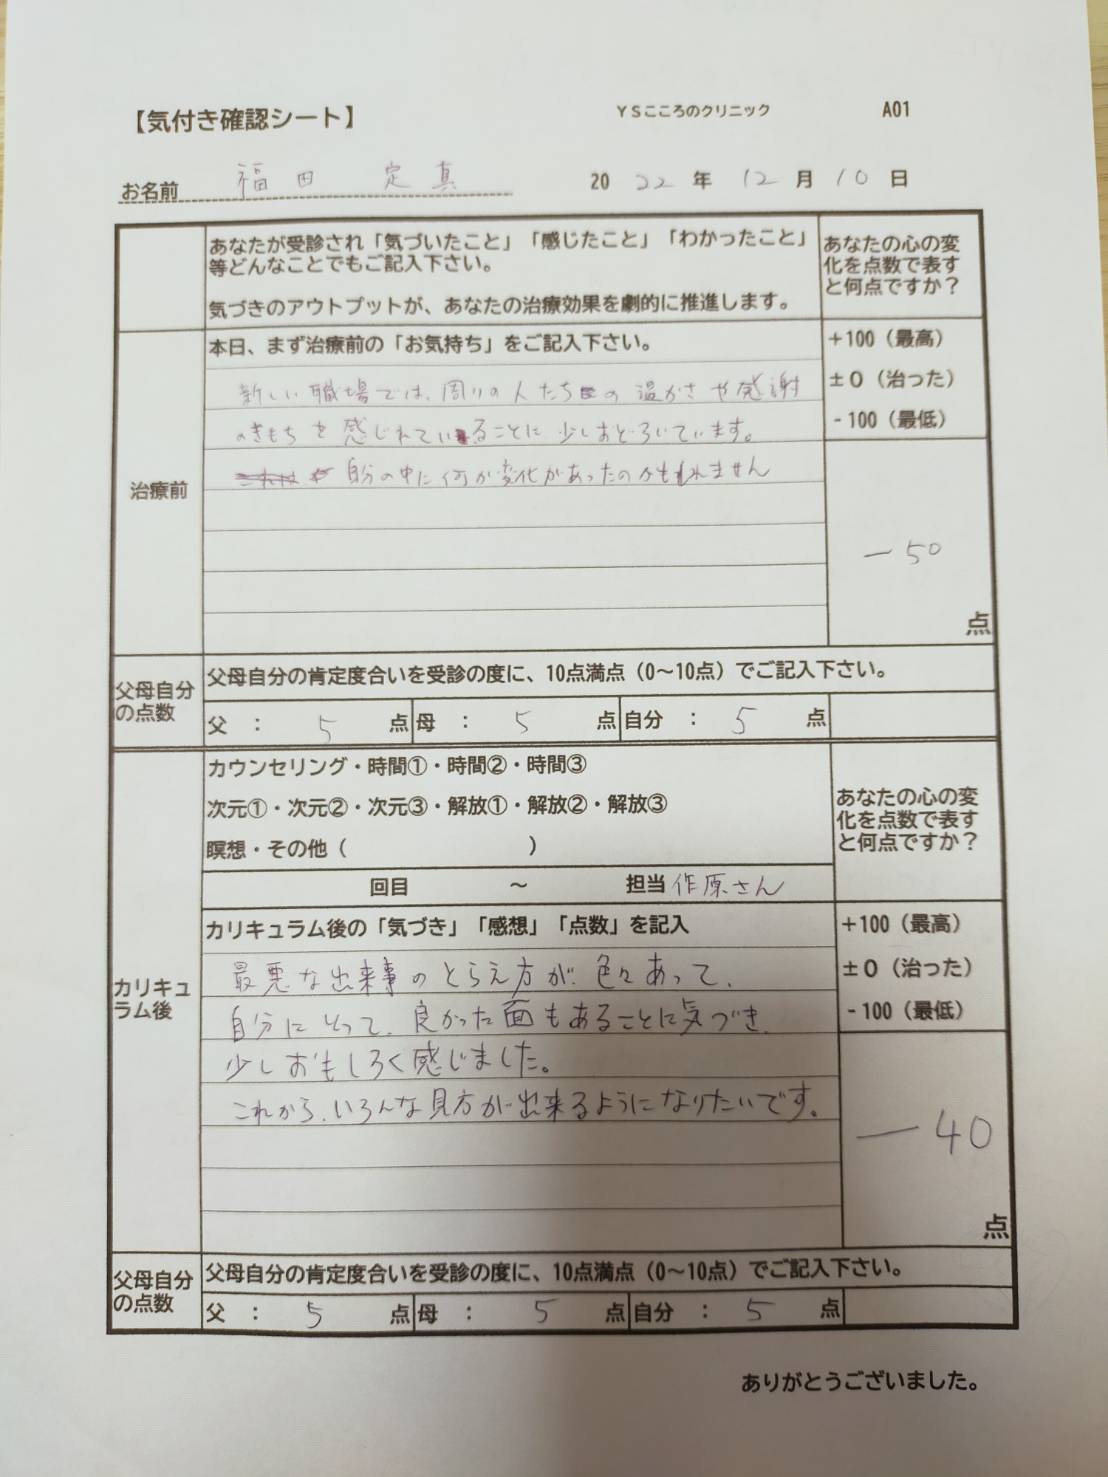 【気付き確認シート】 YSこころのクリニック A01
お名前 福田 定真 2022年 12月 10日
あなたが受診され「気づいたこと」「感じたこと」「わかったこと」
等どんなことでもご記入下さい。
気づきのアウトプットが、あなたの治療効果を劇的に推進します。
あなたの心の変
化を点数で表す
と何点ですか？
治療前
本日、まず治療前の「お気持ち」をご記入下さい。
新しい職場では、周りの人たちの温かさや感謝
のきもちを感じれていることに少しおどろいています。
自分の中に何か変化があったのかもしれません
+100（最高）
±0（治った）
-100（最低）
-50
点
父母自分
の点数
父母自分の肯定度合いを受診の度に、10点満点（0～10点）でご記入下さい。
父 ： 5 点 母 ： 5 点 自分 ： 5 点
カリキュ
ラム後
カウンセリング・時間①・時間②・時間③
次元①・次元②・次元③・解放①・解放②・解放③
瞑想・その他（ ）
回目 ～ 担当 作原さん
あなたの心の変
化を点数で表す
と何点ですか？
カリキュラム後の「気づき」「感想」「点数」を記入
最悪な出来事のとらえ方が、色々あって、
自分にとって、良かった面もあることに気づき、
少しおもしろく感じました。
これから、いろんな見方が出来るようになりたいです。
+100（最高）
±0（治った）
-100（最低）
-40
点
父母自分
の点数
父母自分の肯定度合いを受診の度に、10点満点（0～10点）でご記入下さい。
父 ： 5 点 母 ： 5 点 自分 ： 5 点
ありがとうございました。